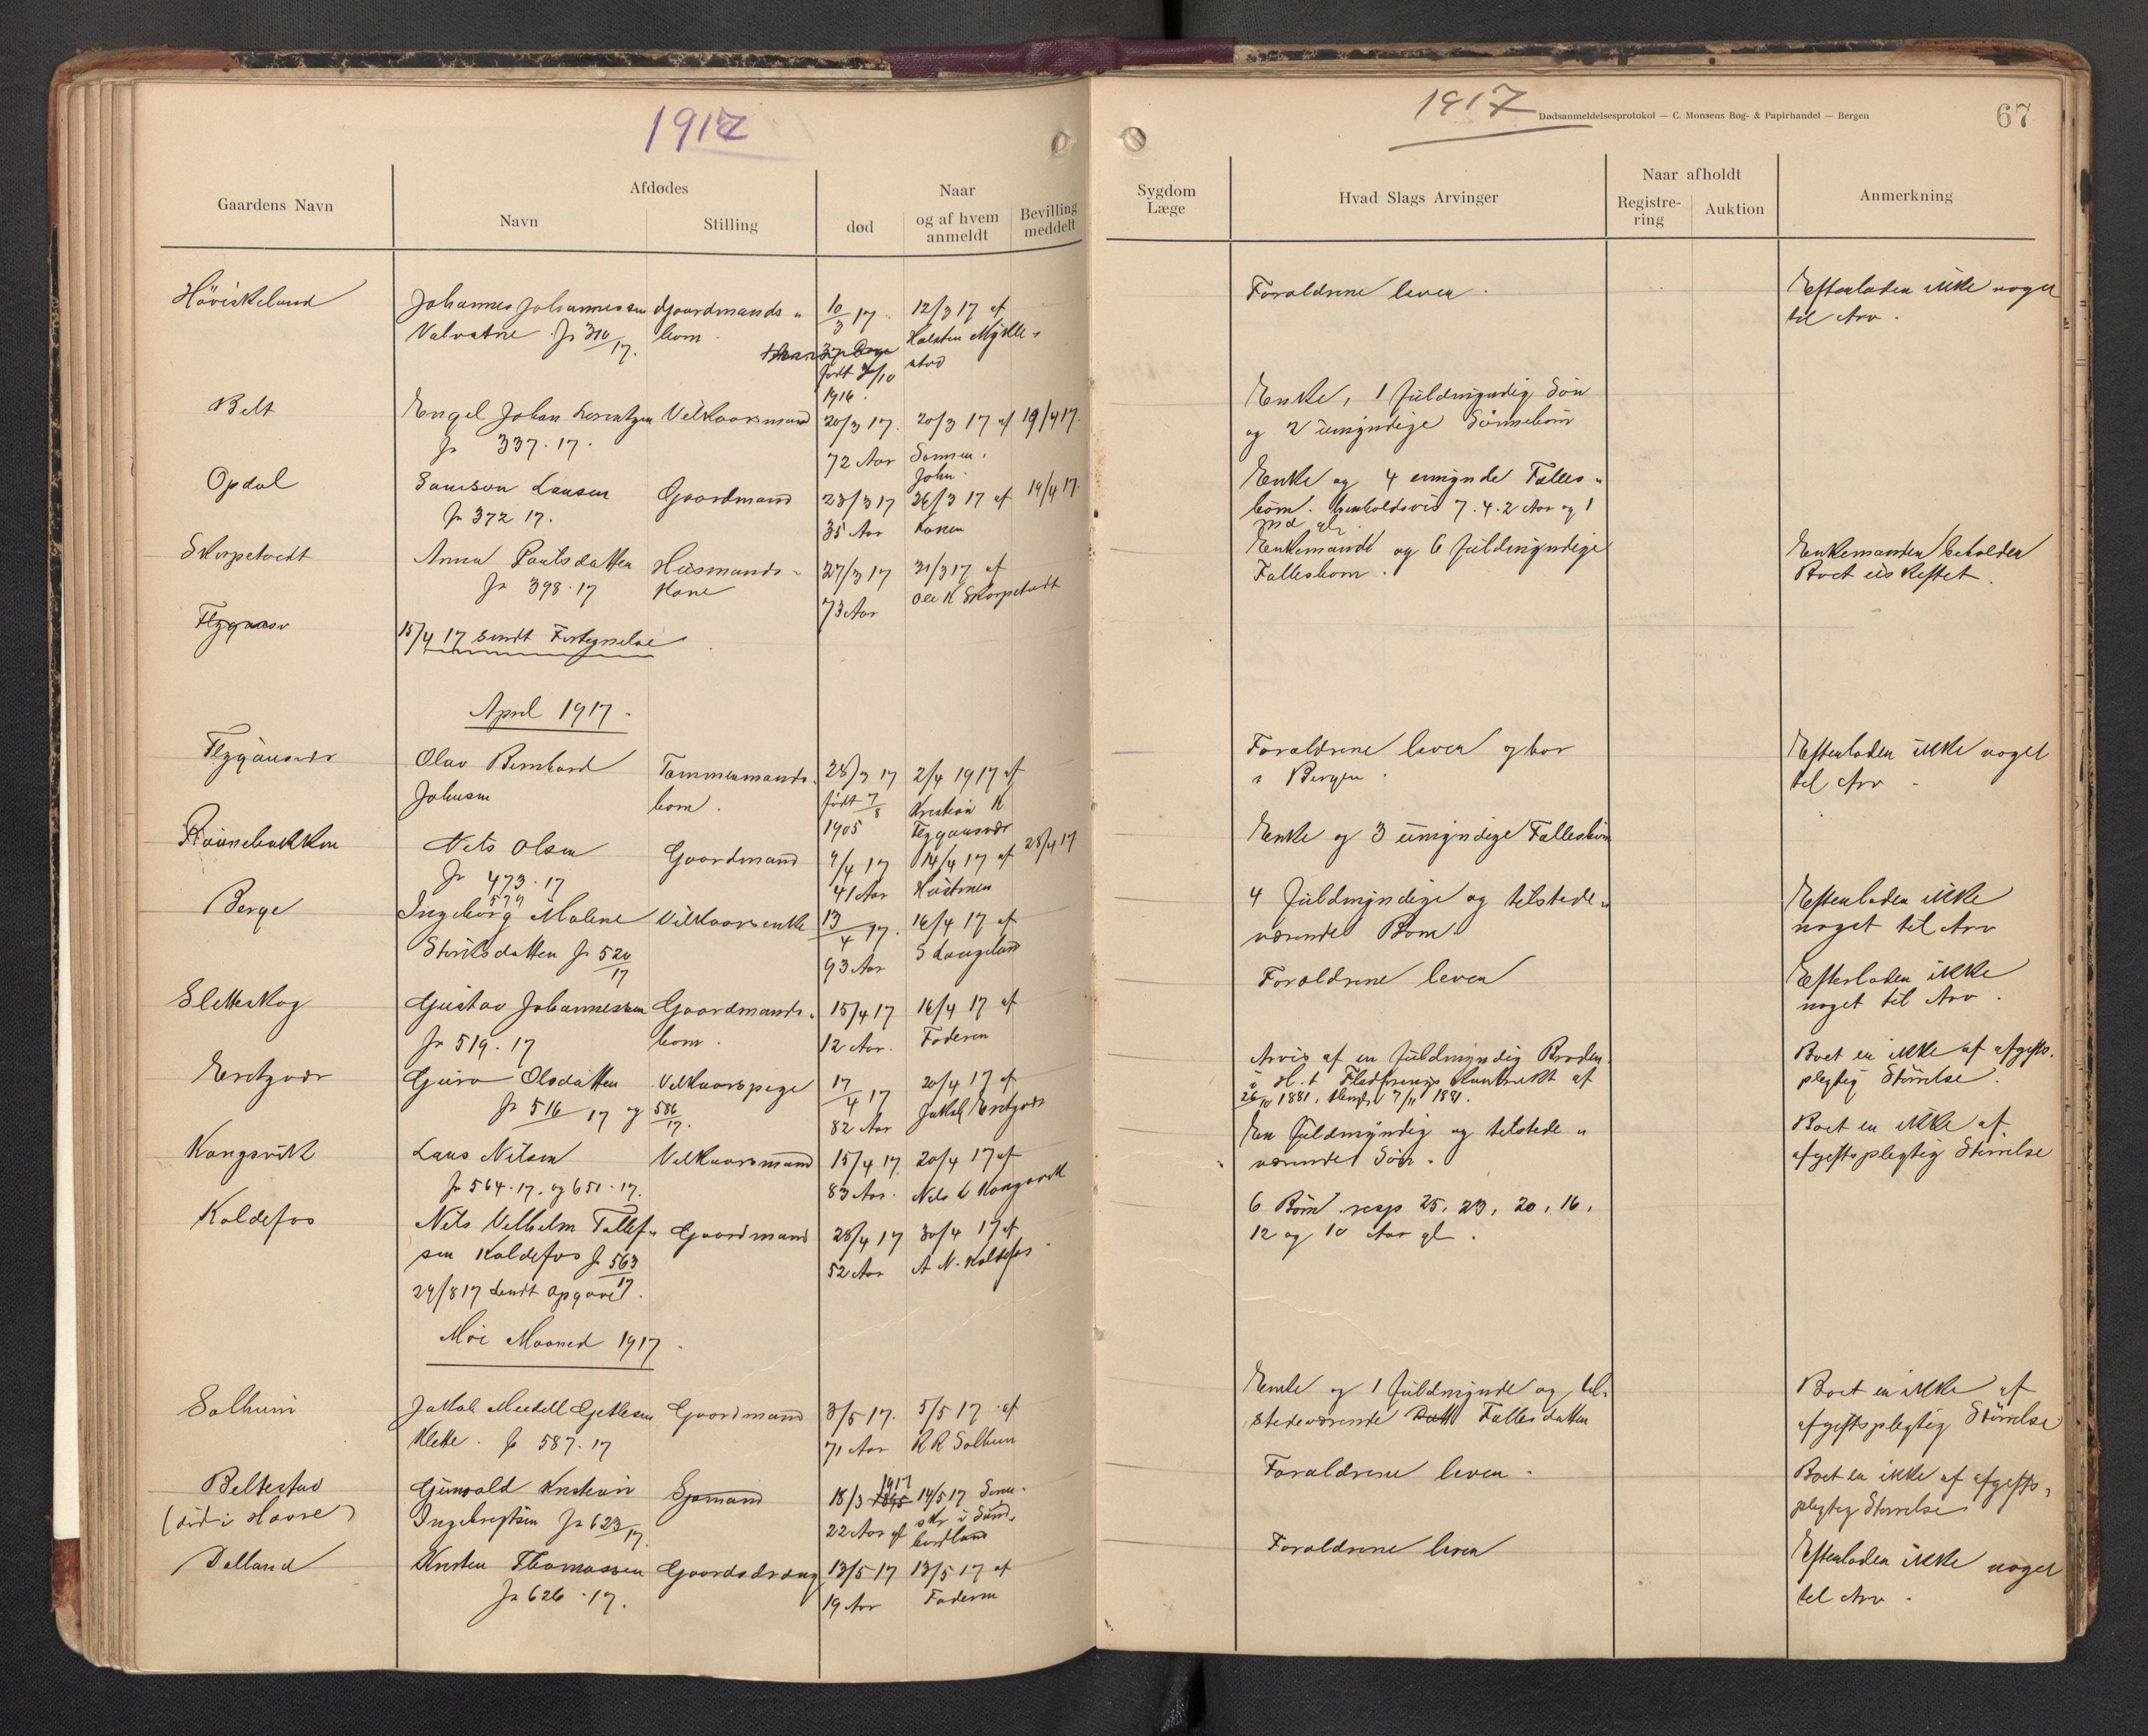 1917
Gaardens Navn
Afdødes
Navn
Stilling
Naar
død
og af hvem
anmeldt
Bevilling
meddelt
Höviskeland
Johannes Johannessen
Gaardmands-
10/3 17.
12/3 17 af
Valvatne. Jr 310/17.
barn.
Halsten Mykle-
født 7/10
stad
1916.
Belt
Engel Johan Lorentzen
Vilkaarsmand
20/3 17.
20/3 17 af
19/4 17.
Jr 337. 17.
72 Aar
Sønnen
John.
Opdal
Samson Larsen
Gaardmand
23/3 17
26/3 17 af
19/4 17.
Jr 372 17.
35 Aar
Konen
Skorpetvedt
Anna Paulsdatter
Husmands-
27/3 17
31/3 17 af
Jr 398. 17
Kone
73 Aar
Ole K Skorpetvedt
15/4 17 sendt Fortegnelse
April 1917.
Flygansvær
Olav Bernhard
Tømmermands-
28/3 17
2/4 1917 af
Johnsen
barn.
født 7/8
Kristian K
1905
Flygansvær
Nils Olsen
Gaardmand
9/4 17
14/4 17 af
28/4 17
Jr 473. 17
41 Aar
Hustruen
579
Berge
Ingeborg Malene
Vilkaarsenke
13/4 17.
16/4 17 af
Størksdatter Jr 520/17
93 Aar
S Langeland
Sletteskog
Gustav Johannessen
Gaardmands-
15/4 17
16/4 17 af
Jr 519. 17
barn.
12 Aar.
Faderen
Eretzvær
Guro Olsdatter
Vilkaarspige
17/4 17
20/4 17 af
Jr 516/17 og 586/17.
82 Aar
Jakob Eretzvær
Kongsvik
Lars Nilsen
Vilkaarsmand
15/4 17
20/4 17 af
Jr 564. 17. og 651. 17.
83 Aar.
Nils L Kongsvik
Koldefos
Nils Vilhelm Tollef-
Gaardmand
28/4 17
30/4 17 af
sen Koldefos Jr 563/17
52 Aar
A N. Koldefos
29/8 17 sendt opgave.
Mai Maaned 1917.
Solheim
Jakob Meidell Gjetlesen
Gaardmand
3/5 17.
5/5 17 af
Klette. Jr 587. 17
71 Aar
R R Solheim
Beltestad
Gunvald Kristian
Sjømand
18/3 1895 1917
14/5 17
(død i Havre)
Ingebrigtsen Jr 623/17.
22 Aar
af
skr i Sønd-
hordland
Dalland
Kristen Thomassen
Gaardsdreng
13/5 17
13/5 17 af
Jr 626. 17.
19 Aar
Faderen
1917
Dødsanmeldelsesprotokol — C. Monsens Bog- & Papirhandel — Bergen
67
Sygdom
Læge
Hvad Slags Arvinger
Naar afholdt
Registre-
ring
Auktion
Anmerkning
Forældrene lever.
Efterlader ikke noget
til Arv.
Enke, 1 fuldmyndig Søn
og 2 umyndige Sønnebørn
Enke og 4 umynde Fælles-
børn. henholdsvis 7. 4. 2 Aar og 1
md gl.
Enkemand og 6 fuldmyndige
Fællesbørn.
Enkemanden beholder
Boet uskiftet.
Forældrene lever og bor
i Bergen.
Efterlader ikke noget
til Arv
Enke og 3 umyndige Fællesbørn
4 fuldmyndige og tilstede-
værende Børn
Efterlader ikke
noget til Arv
Forældrene lever
Efterlader ikke
noget til Arv.
Arves af en fuldmyndig Broder
i H. t. Kontrakt af
26/10 1881, 7/11 1881.
Boet er ikke af afgifts-
plegtig Størrelse.
En fuldmyndig og tilstede-
værende Søn.
Boet er ikke af
afgiftsplegtig Størrelse
6 Børn resp 25, 23, 20, 16,
12 og 10 Aar gl.
Enke og 1 fuldmynde og til-
stedeværende Datt Fællesdatter
Boet er ikke af
afgiftsplegtig Størrelse
Forældrene lever.
Boet er ikke af afgifts-
plegtig Størrelse
Forældrene lever
Efterlader ikke noget
til Arv.